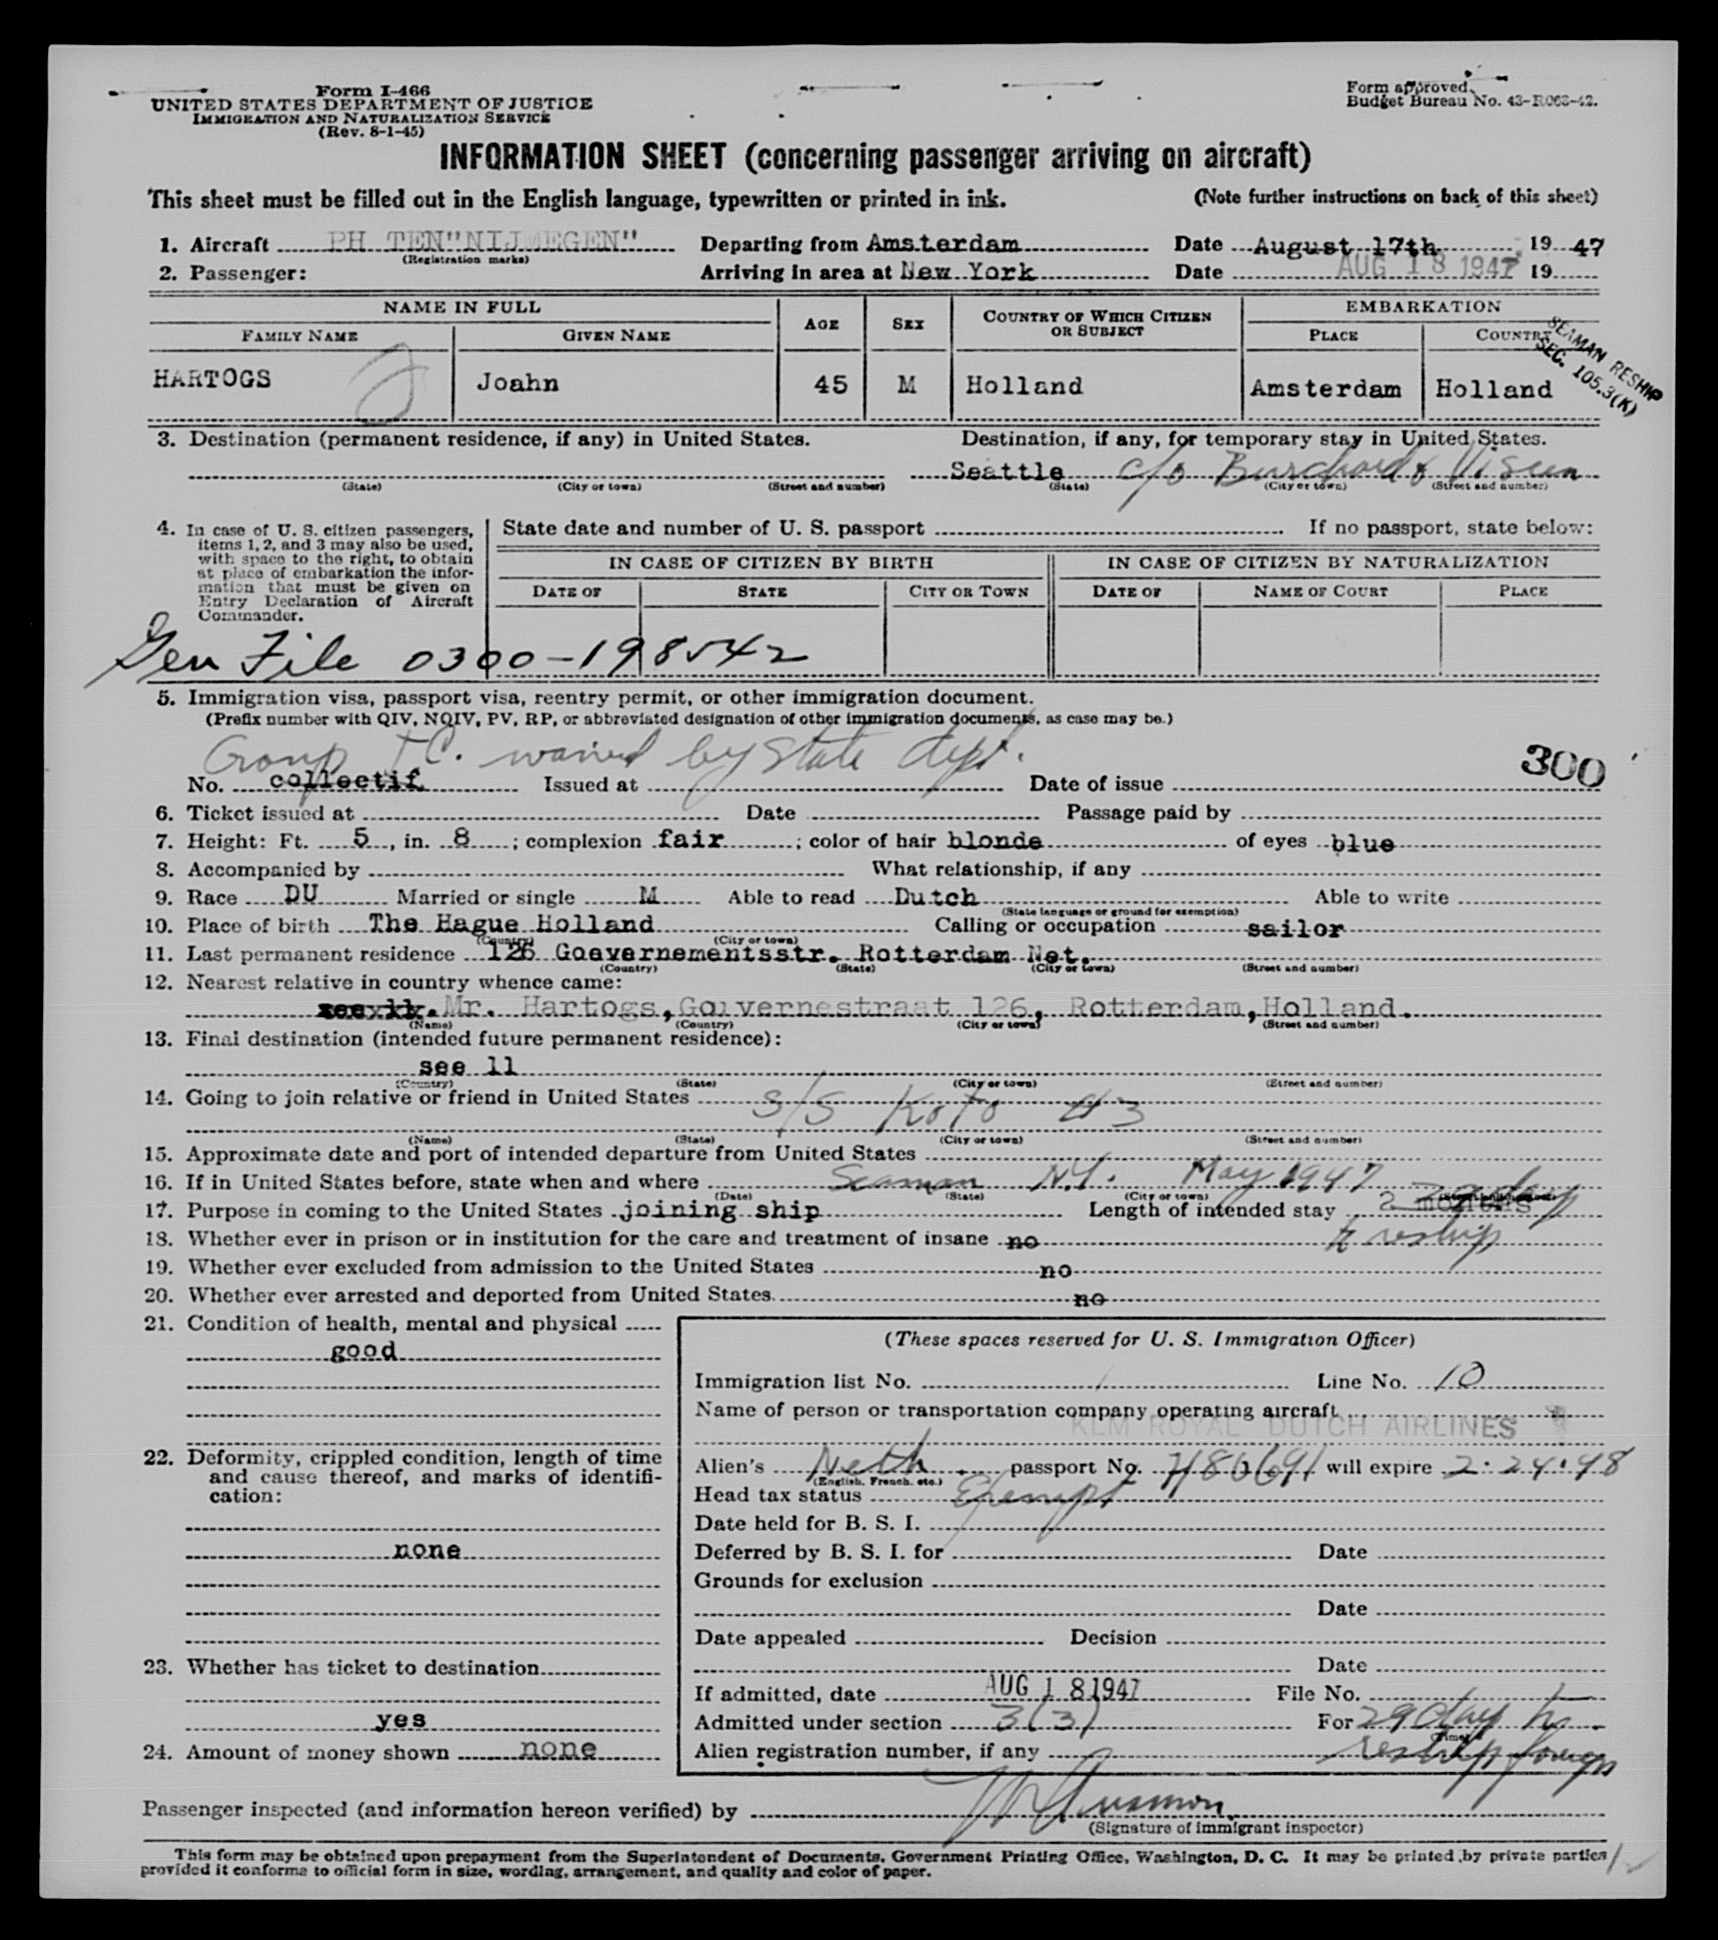 Form I-466
UNITED STATES DEPARTMENT OF JUSTICE
IMMIGRATION AND NATURALIZATION SERVICE
(Rev. 8-1-45)
Form approved.
Budget Bureau No. 43-R063-42.
INFORMATION SHEET (concerning passenger arriving on aircraft)
This sheet must be filled out in the English language, typewritten or printed in ink. (Note further instructions on back of this sheet)
1. Aircraft PH TEN "NIJMEGEN" Departing from Amsterdam Date August 17th 1947
(Registration marks)
2. Passenger: Arriving in area at New York Date AUG 18 1947 19
NAME IN FULL AGE SEX COUNTRY OF WHICH CITIZEN OR SUBJECT EMBARKATION
FAMILY NAME GIVEN NAME PLACE COUNTRY
SEAMAN RESHIP
SEC. 105.3(K)
HARTOGS Joahn 45 M Holland Amsterdam Holland
3. Destination (permanent residence, if any) in United States. Destination, if any, for temporary stay in United States.
Seattle c/o
(State) (City or town) (Street and number) (State) (City or town) (Street and number)
4. In case of U. S. citizen passengers, items 1, 2, and 3 may also be used, with space to the right, to obtain at place of embarkation the information that must be given on Entry Declaration of Aircraft Commander.
State date and number of U. S. passport If no passport, state below:
IN CASE OF CITIZEN BY BIRTH IN CASE OF CITIZEN BY NATURALIZATION
DATE OF STATE CITY OR TOWN DATE OF NAME OF COURT PLACE
Gen File 0300-198542
5. Immigration visa, passport visa, reentry permit, or other immigration document.
(Prefix number with QIV, NQIV, PV, RP, or abbreviated designation of other immigration documents, as case may be.)
Group waived by State dept.
300
No. collectif Issued at Date of issue
6. Ticket issued at Date Passage paid by
7. Height: Ft. 5, in. 8; complexion fair; color of hair blonde of eyes blue
8. Accompanied by What relationship, if any
9. Race DU Married or single M Able to read Dutch Able to write
(State language or ground for exemption)
10. Place of birth The Hague Holland Calling or occupation sailor
(Country) (City or town)
11. Last permanent residence 126 Goevernementsstr. Rotterdam Net.
(Country) (State) (City or town) (Street and number)
12. Nearest relative in country whence came:
Mr. Hartogs, Gouvernestraat 126, Rotterdam, Holland.
(Name) (Country) (City or town) (Street and number)
13. Final destination (intended future permanent residence):
see 11
(Country) (State) (City or town) (Street and number)
14. Going to join relative or friend in United States S/S Koto
(Name) (State) (City or town) (Street and number)
15. Approximate date and port of intended departure from United States
16. If in United States before, state when and where Seaman N.Y. May 1947
(Date) (State) (City or town)
17. Purpose in coming to the United States joining ship Length of intended stay 2 months
to reship
18. Whether ever in prison or in institution for the care and treatment of insane no
19. Whether ever excluded from admission to the United States no
20. Whether ever arrested and deported from United States. no
21. Condition of health, mental and physical
good
22. Deformity, crippled condition, length of time and cause thereof, and marks of identification:
none
23. Whether has ticket to destination
yes
24. Amount of money shown none
(These spaces reserved for U. S. Immigration Officer)
Immigration list No. Line No. 10
Name of person or transportation company operating aircraft
KLM ROYAL DUTCH AIRLINES
Alien's Neth passport No. will expire 2.24.48
(English, French, etc.)
Head tax status Exempt
Date held for B. S. I.
Deferred by B. S. I. for Date
Grounds for exclusion
Date
Date appealed Decision
Date
If admitted, date AUG 18 1947 File No.
Admitted under section 3(3) For 29 days to
(Time)
Alien registration number, if any reship foreign
Passenger inspected (and information hereon verified) by
(Signature of immigrant inspector)
This form may be obtained upon prepayment from the Superintendent of Documents, Government Printing Office, Washington, D. C. It may be printed by private parties
provided it conforms to official form in size, wording, arrangement, and quality and color of paper.